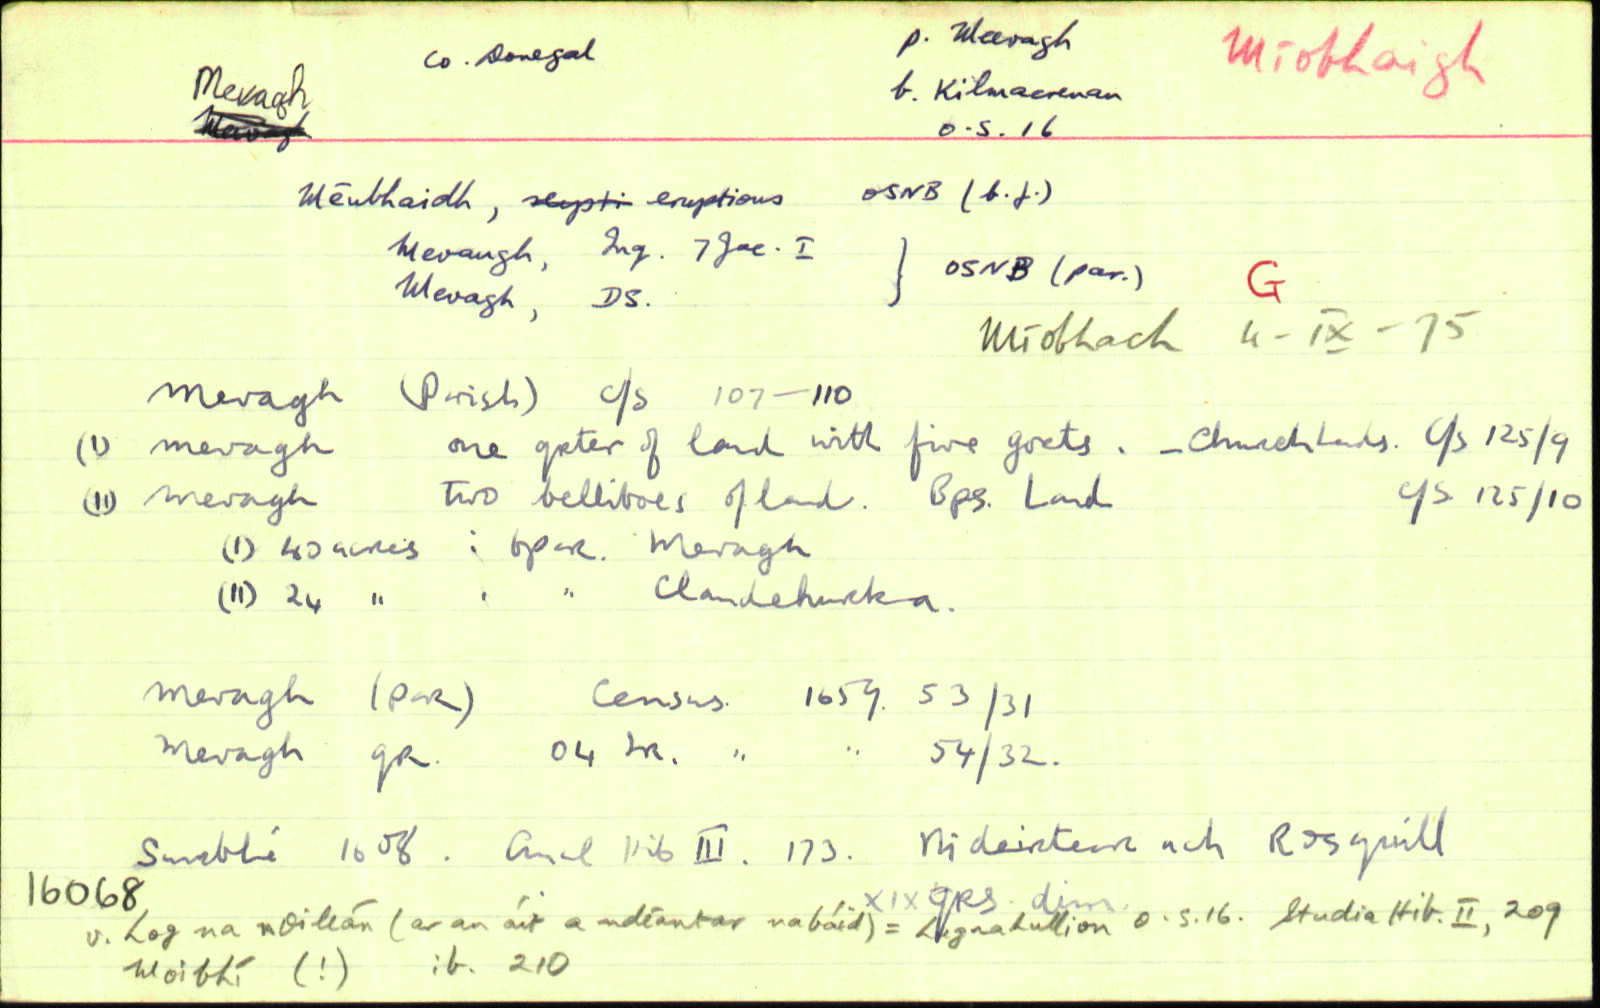 Mevagh co. Donegal p. Meevagh Míobhaigh
Mevagh b. Kilmacrenan
O.S. 16
Méubhaidh, erupti eruptions OSNB (b.f.)
Mevaugh, Inq. 7 Jac. I } OSNB (par.) G
Mevagh, DS.
Míobhach 4-IX-75
Mevagh (Parish) C/S 107-110
(I) Mevagh one qrter of land with five gorts. - Churchlands. C/S 125/9
(II) Mevagh two belliboes of land. Bps. Land C/S 125/10
(I) 40 acres : par. Mevagh
(II) 24 " : " Clandehurka.
Mevagh (par) Census. 1659. 53/31
Mevagh qr. 04 Ir. " " 54/32.
Suirbhé 1608. Anal Hib III. 173. Ní deirtear ach Rosguill
XIX qrs. dim.
16068
v. Log na nOileán (ar an áit a ndéantar na báid) = Lugnahullion O.S.16. Studia Hib. II, 209
Moibhí (!) ib. 210